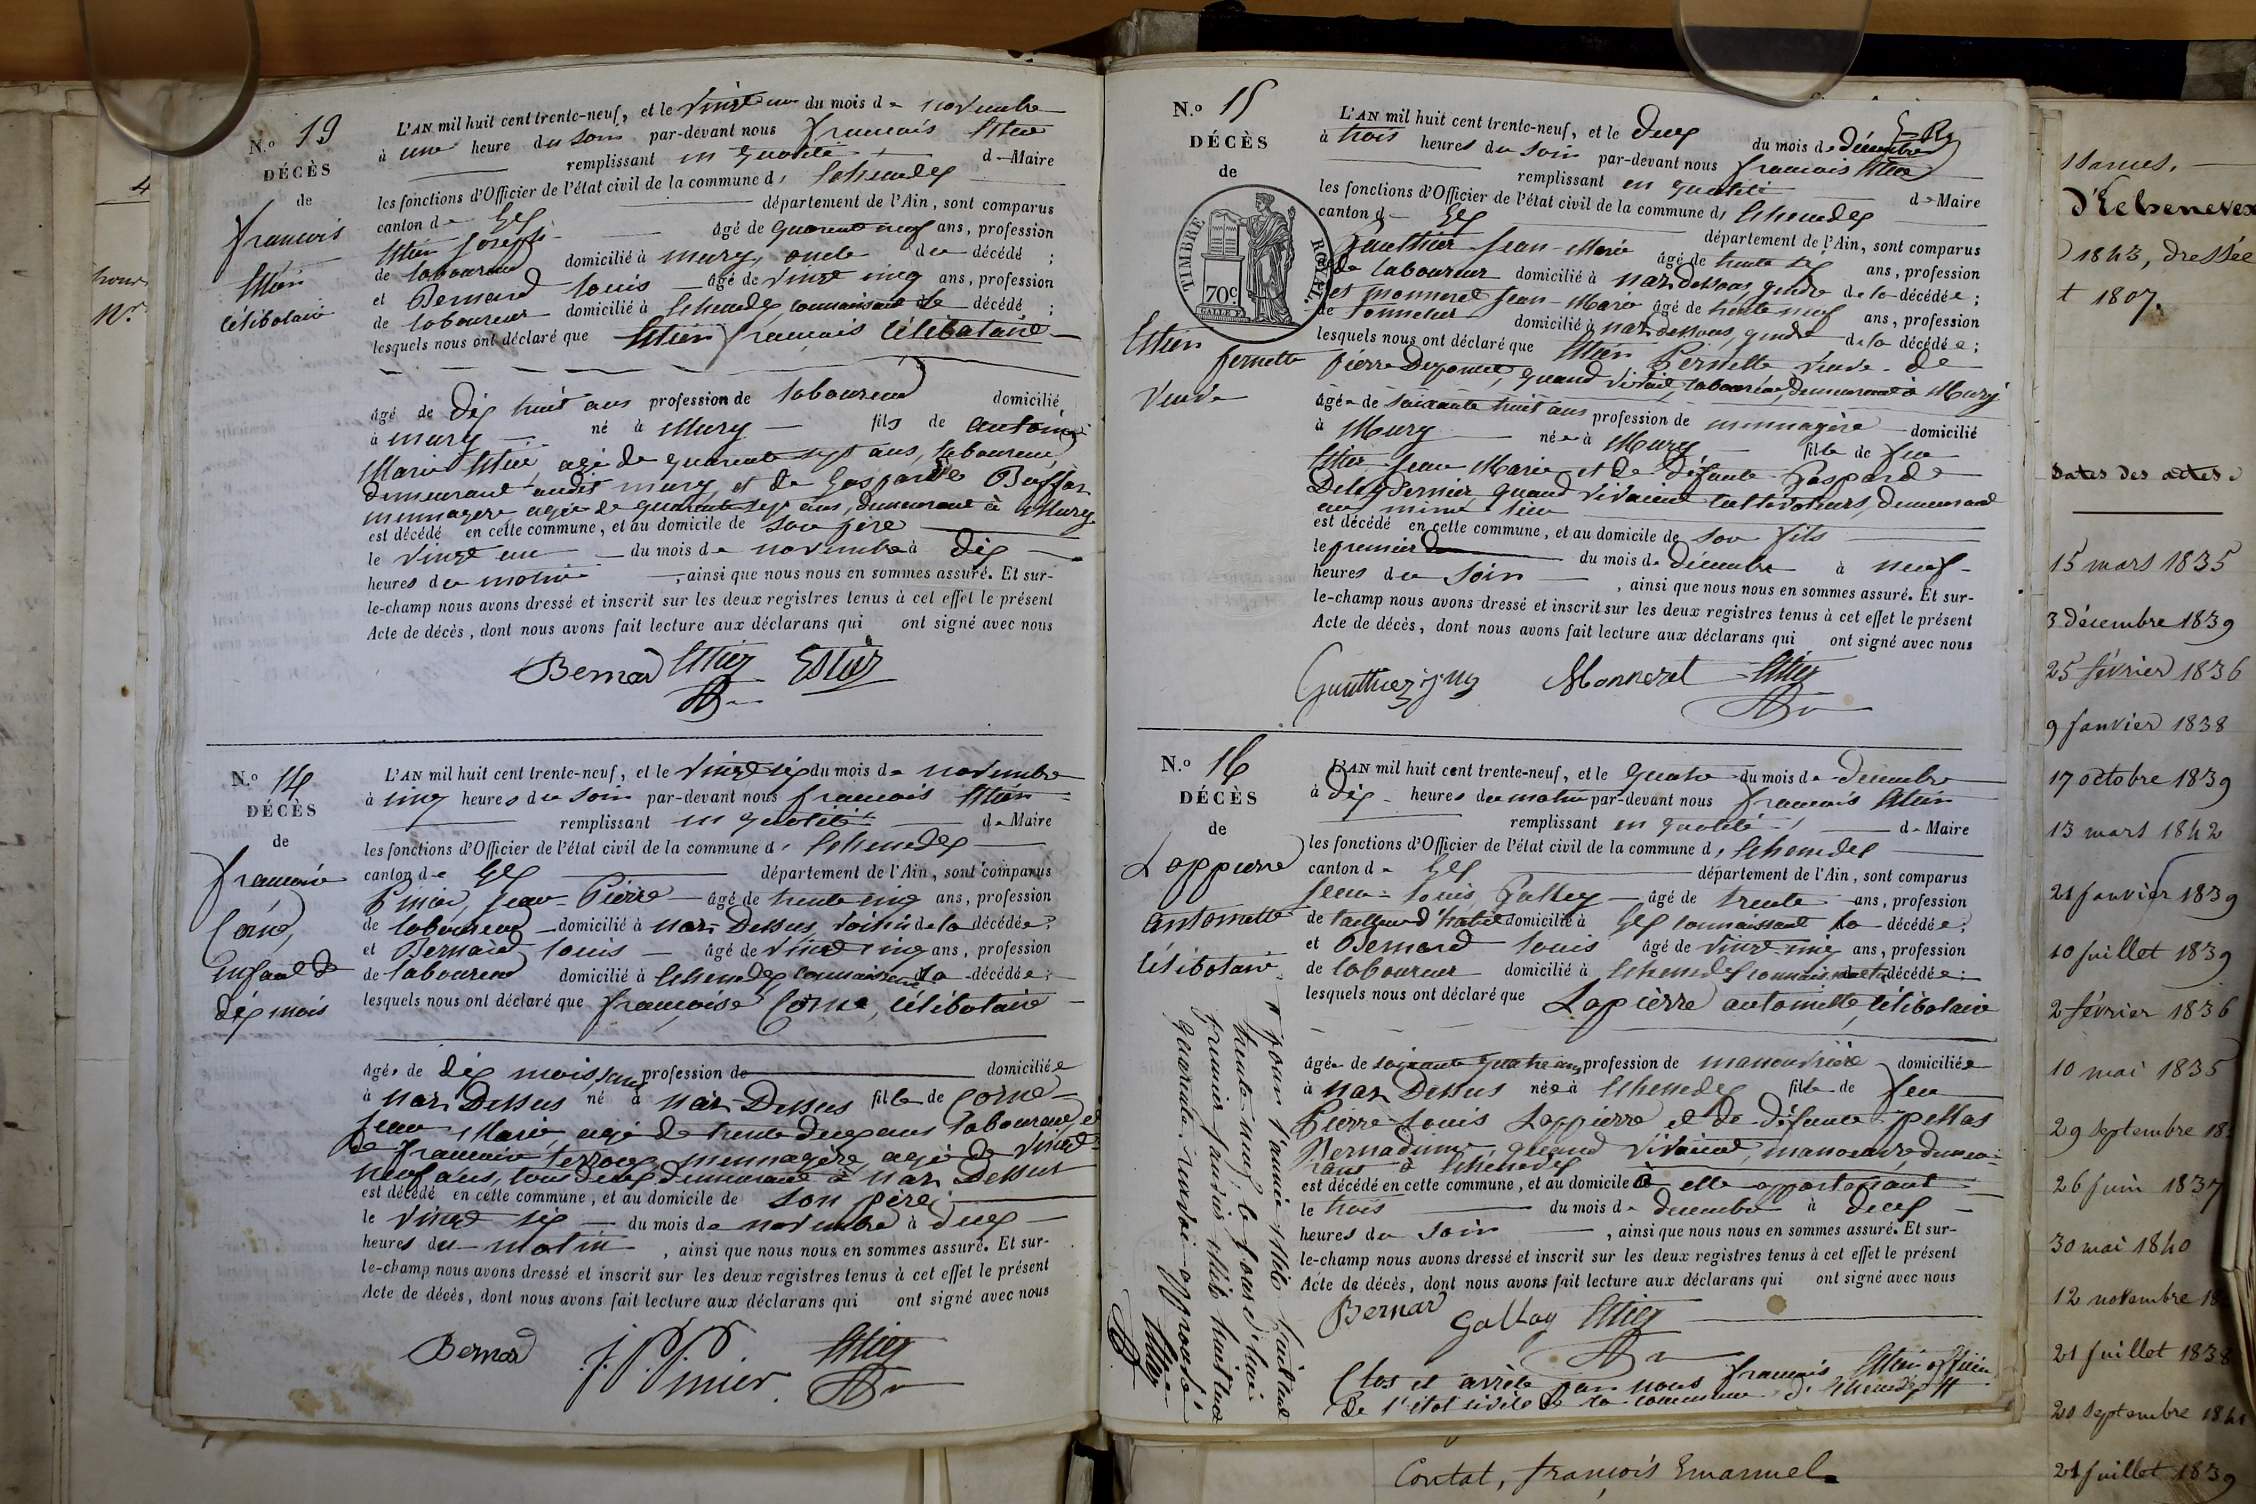 N.o 13
DÉCÈS
de
françois
Estier
célibataire
L'AN mil huit cent trente-neuf, et le vingt un du mois de novembre
à une heure du soir par-devant nous françois Estier
remplissant en qualité de Maire
les fonctions d'Officier de l'état civil de la commune d'Echenevex
canton de Gex département de l'Ain, sont comparus
Estier Joseph âgé de quarante neuf ans, profession
de laboureur domicilié à mury, oncle du décédé ;
et Bernard Louis âgé de vingt cinq ans, profession
de laboureur domicilié à Echenevex connaissant le décédé ;
lesquels nous ont déclaré que Estier françois célibataire
âgé de dix huit ans profession de laboureur domicilié
à mury né à Mury fils de antoine
Marie Estier, agé de quarante sept ans, laboureur,
demeurant audit mury et de Gasparde Buffar
mennagere agée de quarante sept ans, demeurant à Mury
est décédé en cette commune, et au domicile de son père
le vingt un du mois de novembre à dix
heures du matin , ainsi que nous nous en sommes assuré. Et sur-
le-champ nous avons dressé et inscrit sur les deux registres tenus à cet effet le présent
Acte de décès, dont nous avons fait lecture aux déclarans qui ont signé avec nous
Bernard Estier Estier
N.o 14
DÉCÈS
de
françoise
Corne,
enfant de
dix mois
L'AN mil huit cent trente-neuf, et le vingt six du mois de novembre
à cinq heures du soir par-devant nous françois Estier
remplissant en qualité de Maire
les fonctions d'Officier de l'état civil de la commune d'Echenevex
canton de Gex département de l'Ain, sont comparus
Pinier, Jean-Pierre âgé de trente cinq ans, profession
de laboureur domicilié à Naz-Dessus, voisin de la décédée ;
et Bernard Louis âgé de vingt cinq ans, profession
de laboureur domicilié à Echenevex connaissant la décédée ;
lesquels nous ont déclaré que françoise Corne, célibataire
âgée de dix mois, sans profession de domiciliée
à Naz-Dessus né à Naz-Dessus fille de Corne
Jean Marie, agé de trente deux ans laboureur, et
de françoise mennagère, agée de vingt
neuf ans, tous deux demeurant à Naz-Dessus
est décédé en cette commune, et au domicile de son père
le vingt six du mois de novembre à deux
heures du matin , ainsi que nous nous en sommes assuré. Et sur-
le-champ nous avons dressé et inscrit sur les deux registres tenus à cet effet le présent
Acte de décès, dont nous avons fait lecture aux déclarans qui ont signé avec nous
Bernard J. P. Pinier. Estier
N.o 15
DÉCÈS
de
TIMBRE ROYAL.
70c.
Estier
pernette
Veuve
L'AN mil huit cent trente-neuf, et le deux du mois de décembre
à trois heures du soir par-devant nous françois Estier
remplissant en qualité de Maire
les fonctions d'Officier de l'état civil de la commune d'Echenevex
canton de Gex département de l'Ain, sont comparus
Gauthier Jean-Marie âgé de trente six ans, profession
de laboureur domicilié à Naz-Dessous, gendre de la décédée ;
et Monneret Jean-Marc âgé de trente neuf ans, profession
de Tonnelier domicilié à Naz-Dessous, gendre de la décédée ;
lesquels nous ont déclaré que Estier Pernette veuve de
pierre quand vivait, laboureur, demeurant à Mury
âgée de soixante huit ans profession de mennagère domicilié
à Mury née à Mury fille de feu
Estier Jean Marie et de défunte Gasparde
quand vivaient cultivateurs, demeurant
au même lieu
est décédé en cette commune, et au domicile de son fils
le premier du mois de décembre à neuf
heures du soir , ainsi que nous nous en sommes assuré. Et sur-
le-champ nous avons dressé et inscrit sur les deux registres tenus à cet effet le présent
Acte de décès, dont nous avons fait lecture aux déclarans qui ont signé avec nous
Gauthier Monneret Estier
N.o 16
DÉCÈS
de
Lappierre
antoinette
célibataire
L'AN mil huit cent trente-neuf, et le quatre du mois de décembre
à dix heures du matin par-devant nous françois Estier
remplissant en qualité de Maire
les fonctions d'Officier de l'état civil de la commune d'Echenevex
canton de Gex département de l'Ain, sont comparus
Jean-Louis Gallay âgé de trente ans, profession
de tailleur d'habit domicilié à Gex connaissant la décédée ;
et Bernard Louis âgé de vingt-cinq ans, profession
de laboureur domicilié à Echenevex connaissant la décédée ;
lesquels nous ont déclaré que Lapierre antoinette, célibataire
âgée de soixante quatre ans profession de manouvrière domiciliée
à Naz-Dessus née à Echenevex fille de feu
Pierre Louis Lappierre et de défunte pellas
Bernadine, quand vivaient, manoeuvre demeu-
rant à Echenevex
est décédé en cette commune, et au domicile à elle appartenant
le trois du mois de décembre à deux
heures du soir , ainsi que nous nous en sommes assuré. Et sur-
le-champ nous avons dressé et inscrit sur les deux registres tenus à cet effet le présent
Acte de décès, dont nous avons fait lecture aux déclarans qui ont signé avec nous
Bernard Gallay Estier
Clos et arrêté par nous françois Estier officier
de l'état civile de la commune d'Echenevex #
# pour l'année mille huit cent
trente-neuf, le jour d'hui
premier janvier mile huit cent
quarante. renvoi approuvé
Estier
d'Echenevex
1843, dressée
t 1807.
dates des actes
15 mars 1835
3 décembre 1839
25 février 1836
9 Janvier 1838
17 octobre 1839
13 mars 1842
21 Janvier 1839
10 Juillet 1839
2 février 1836
10 mai 1835
29 septembre 18
26 Juin 1837
30 mai 1840
12 novembre 18
21 Juillet 1838
20 septembre 1841
21 Juillet 1839
Contat, françois Emanuel